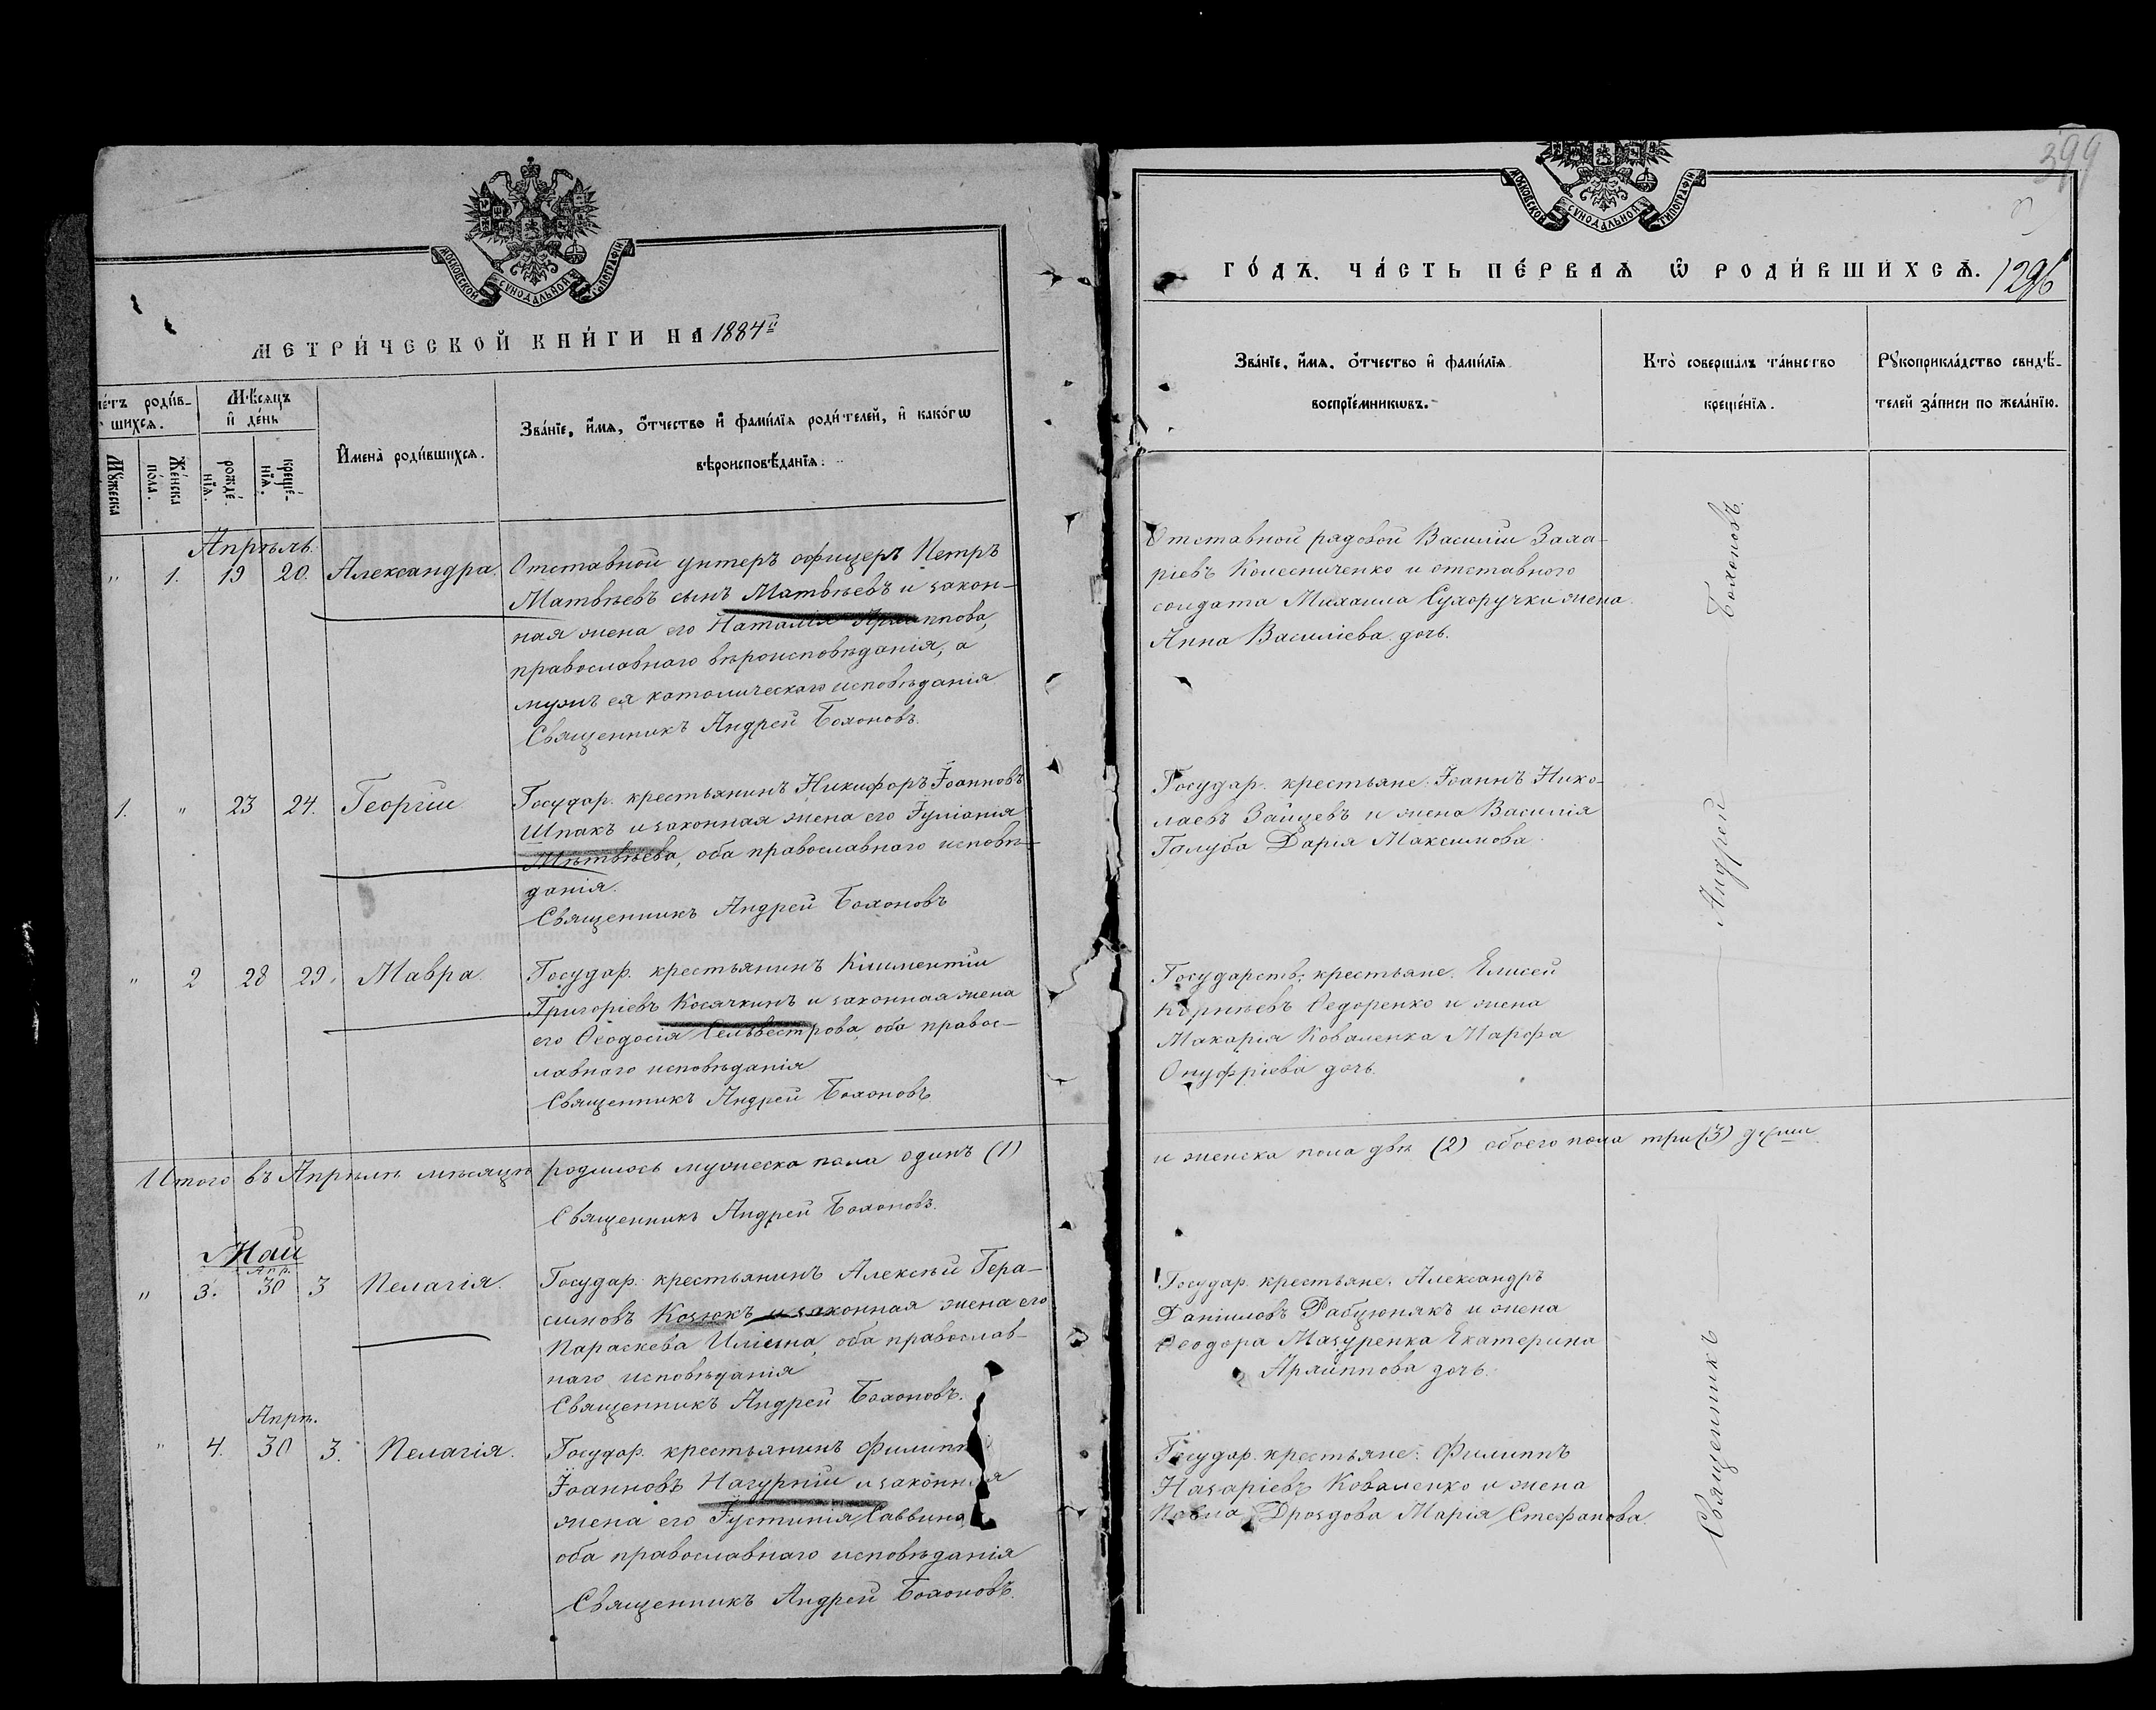 МОСКОВСКОЙ СУНОДАЛЬНОЙ ТИПОГРАФІИ
МЕТРИ́ЧЕСКОЙ КНИ́ГИ НА 1884й
Мѣ́сяцъ и де́нь
роди́вшихся.
Му́жеска
Же́нска
по́ла.
рожде́нїя.
креще́нїя.
Имена̀ роди́вшихся.
Зва́нїе, и́мя, ѻ́тчество и фами́лїя роди́телей, и како́гѡ
вѣроисповѣ́данїя.
Апрѣль.
" 1. 19 20. Александра. Отставной унтеръ офицеръ Петръ
Матвѣевъ сынъ Матвѣевъ и закон-
ная жена его Наталія Архиппова,
православнаго вѣроисповѣданія, а
мужъ ея католическаго исповѣданія
Священникъ Андрей Бохоновъ.
1. " 23 24. Георгій Государ. крестьянинъ Никифоръ Іоанновъ
Шпакъ и законная жена его Іуліанія
Матвѣева, оба православнаго исповѣ-
данія.
Священникъ Андрей Бохоновъ
" 2 28 29. Мавра. Государ. крестьянинъ Климентій
Григоріевъ Косячкинъ и законная жена
его Ѳеодосія Сельвестрова, оба правос-
лавнаго исповѣданія
Священникъ Андрей Бохоновъ
Итого въ Апрѣлѣ мѣсяцѣ родилось мужеска пола одинъ (1)
Священникъ Андрей Бохоновъ.
Май
Апр.
" 3. 30 3 Пелагія. Государ. крестьянинъ Алексѣй Гера-
симовъ Козюкъ и законная жена его
Параскева Иліина, оба православ-
наго исповѣданія
Священникъ Андрей Бохоновъ.
Апрѣ.
" 4. 30 3. Пелагія. Государ. крестьянинъ Филиппъ
Іоанновъ Нагурній и законная
жена его Іустинія Саввина
оба православнаго исповѣданія
Священникъ Андрей Бохоновъ.
399
МОСКОВСКОЙ СУНОДАЛЬНОЙ ТИПОГРАФІИ
ГО́ДЪ. ЧА́СТЬ ПЕ́РВАЯ Ѡ РОДИ́ВШИХСЯ. 1296
Зва́нїе, и́мя, ѻ́тчество и фами́лїя
воспрїе́мникѡвъ.
Кто̀ соверша́лъ та́инство
креще́нїя.
Рꙋкоприкла́дство свидѣ́-
телей за́писи по жела́нїю.
Отставной рядовой Василій Заха-
ріевъ Колесниченко и отставного
солдата Михаила Сухоручки жена
Анна Василіева дочь.
Государ. крестьяне: Іоаннъ Нико-
лаевъ Зайцевъ и жена Василія
Голуба Дарія Максимова.
Государств. крестьяне. Елисей
Корнѣевъ Ѳедоренко и жена
Макарія Коваленка Марфа
Онуфріева дочь.
и женска пола двѣ (2) обоего пола три (3) души
Государ. крестьяне. Александръ
Даніиловъ Рабцюнякъ и жена
Ѳеодора Мазуренка Екатерина
Архиппова дочь.
Государ. крестьяне: Филиппъ
Назаріевъ Коваленко и жена
Павла Дроздова Марія Стефанова.
Священникъ Андрей Бохоновъ.